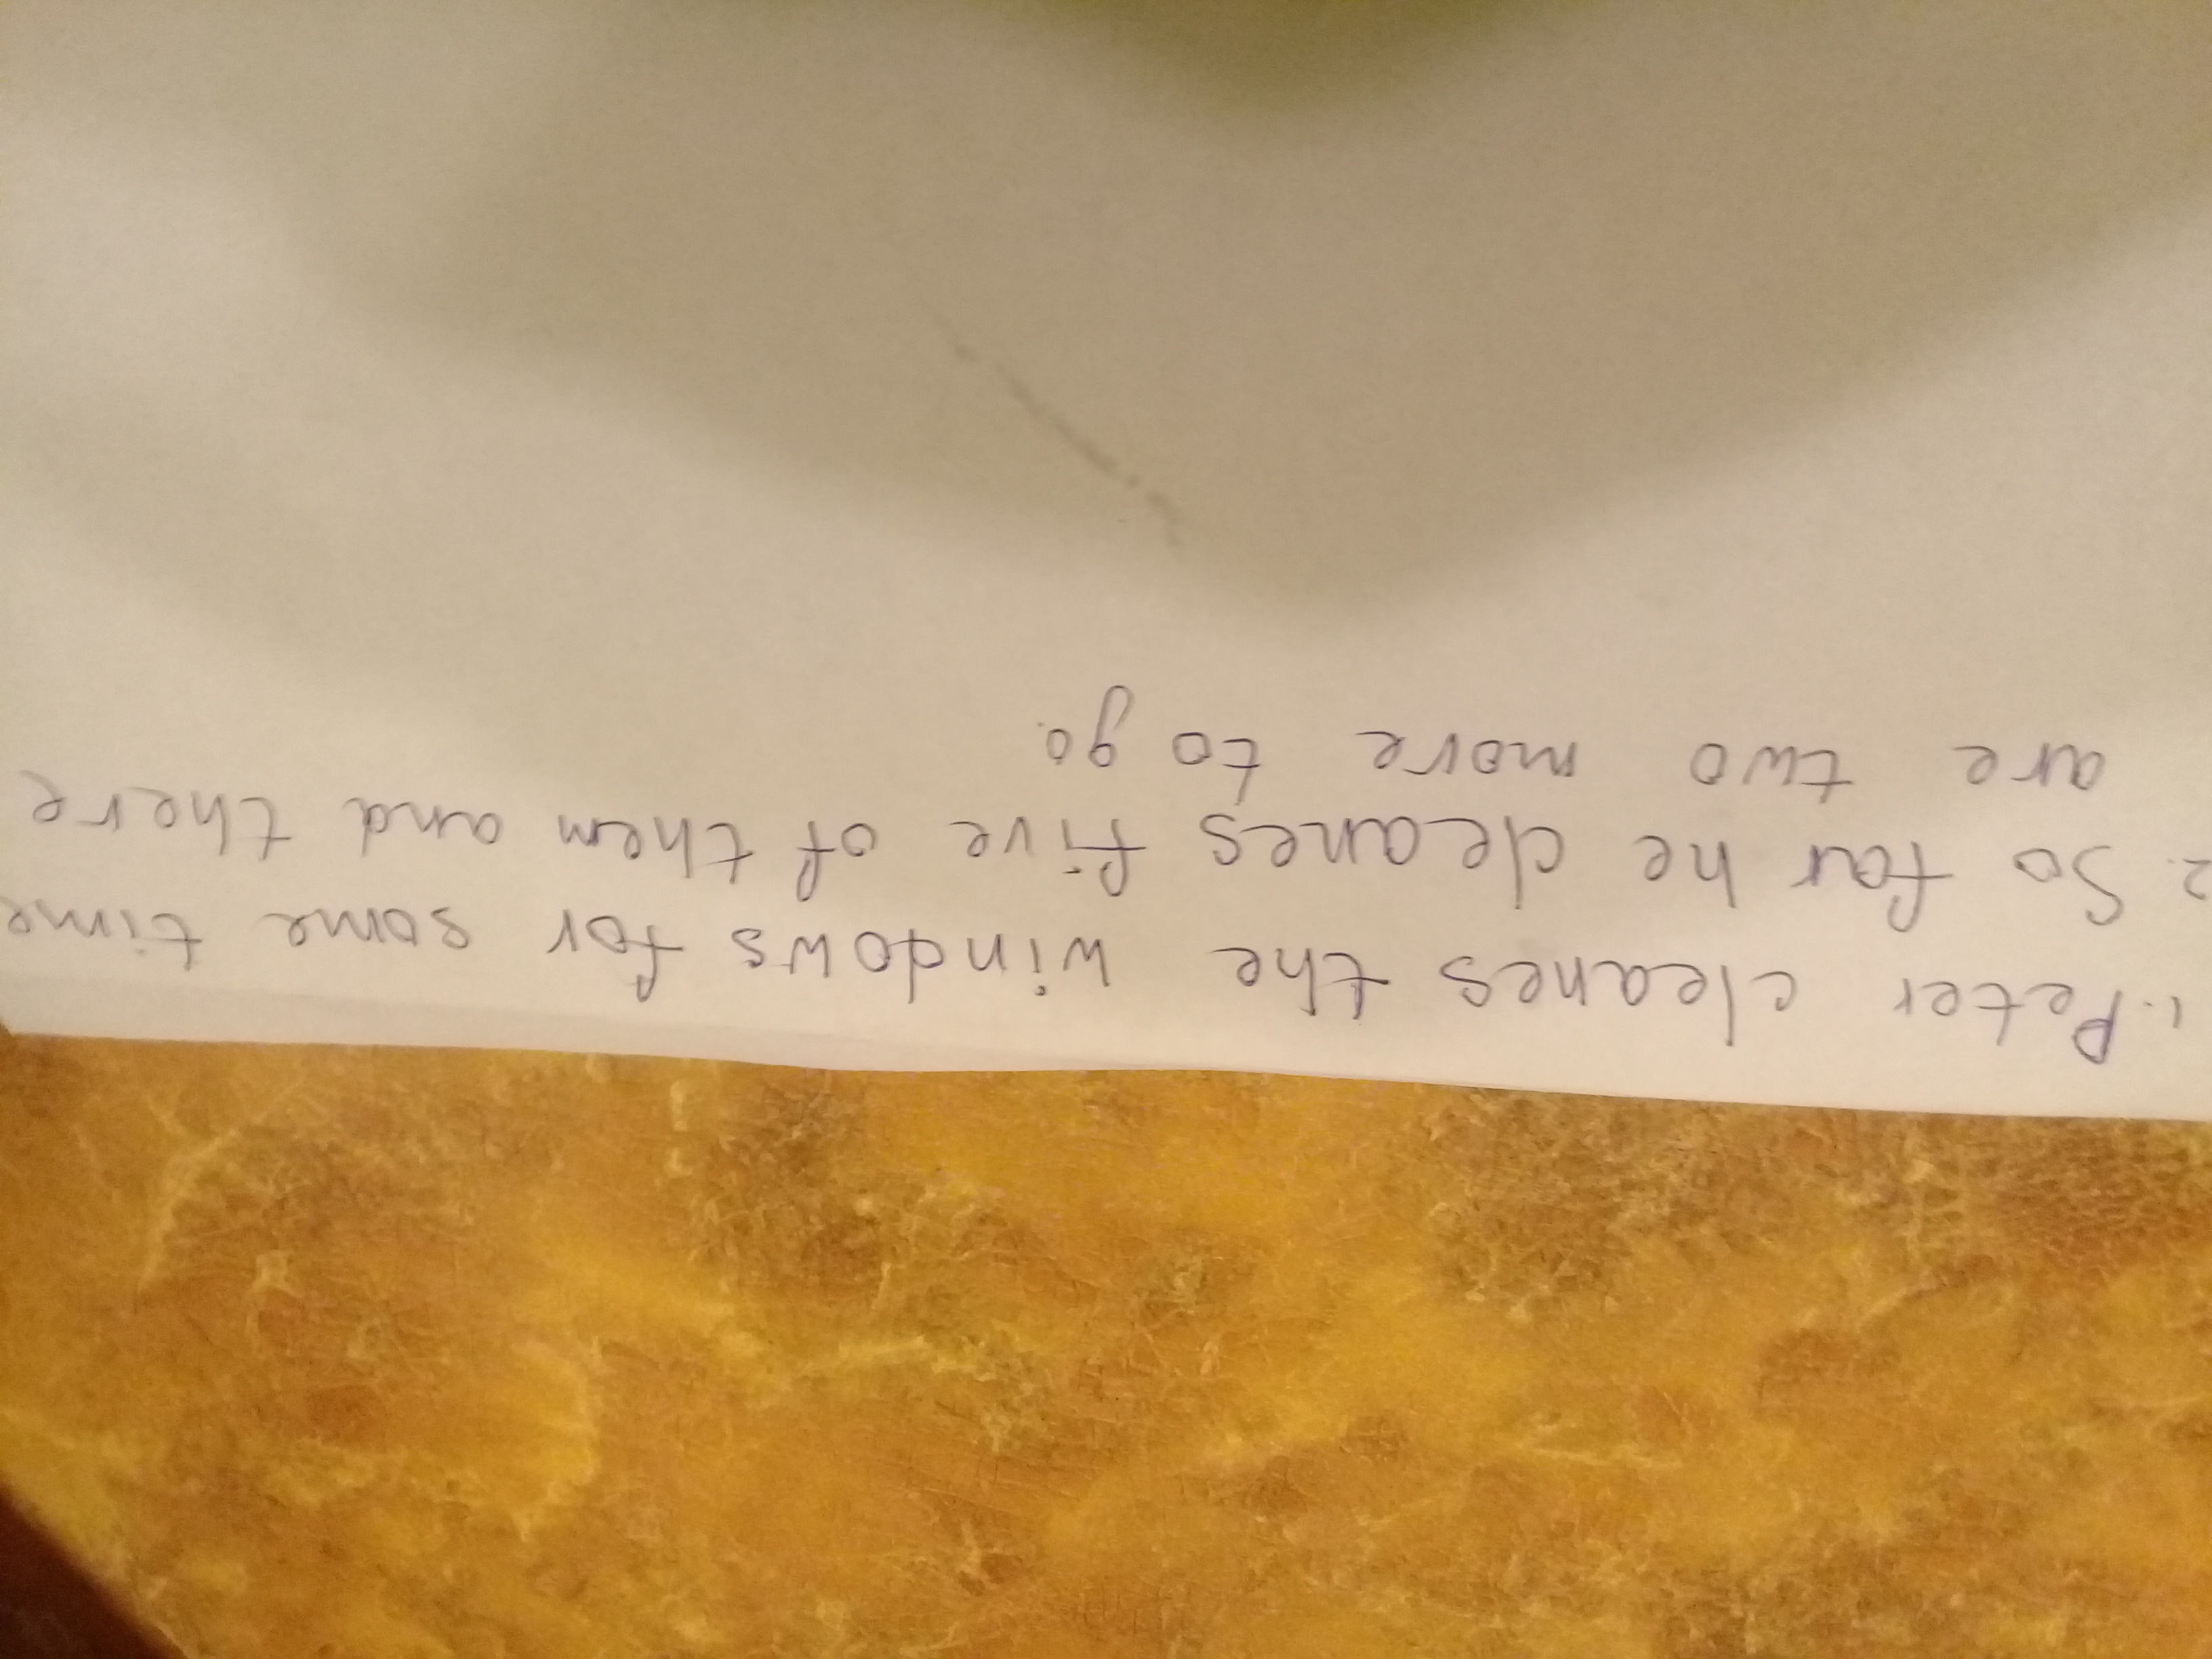 1. Peter cleanes the windows for some time
2. So far he cleanes five of them and there
are two more to go.